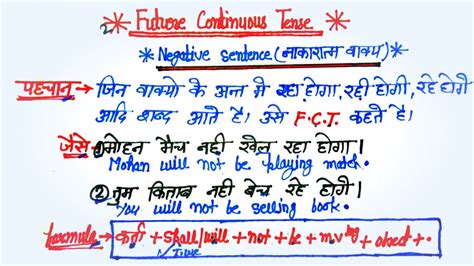 * Future Continuous Tense *
* Negative sentence (नाकारात्म वाक्य) *
पहचान → जिन वाक्यो के अन्त मे रहा होगा, रही होगी, रहे होगे
आदि शब्द आते है। उसे F.C.T. कहते है।
जैसे ① मोहन मैच नही खेल रहा होगा।
Mohan will not be playing match.
② तुम किताब नही बेच रहे होगे।
You will not be selling book.
formula → कर्ता + shall/will + not + be + m.v ing + obect + .